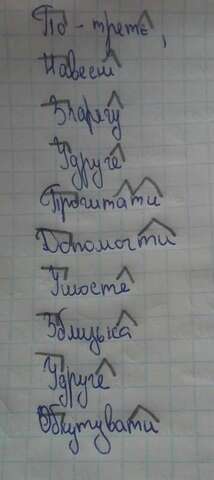 По-третє,
Навесні
Спарягу
Удруге
Прочитати
Допомогти
Ушосте
Зблизька
Удруге
Обкутувати